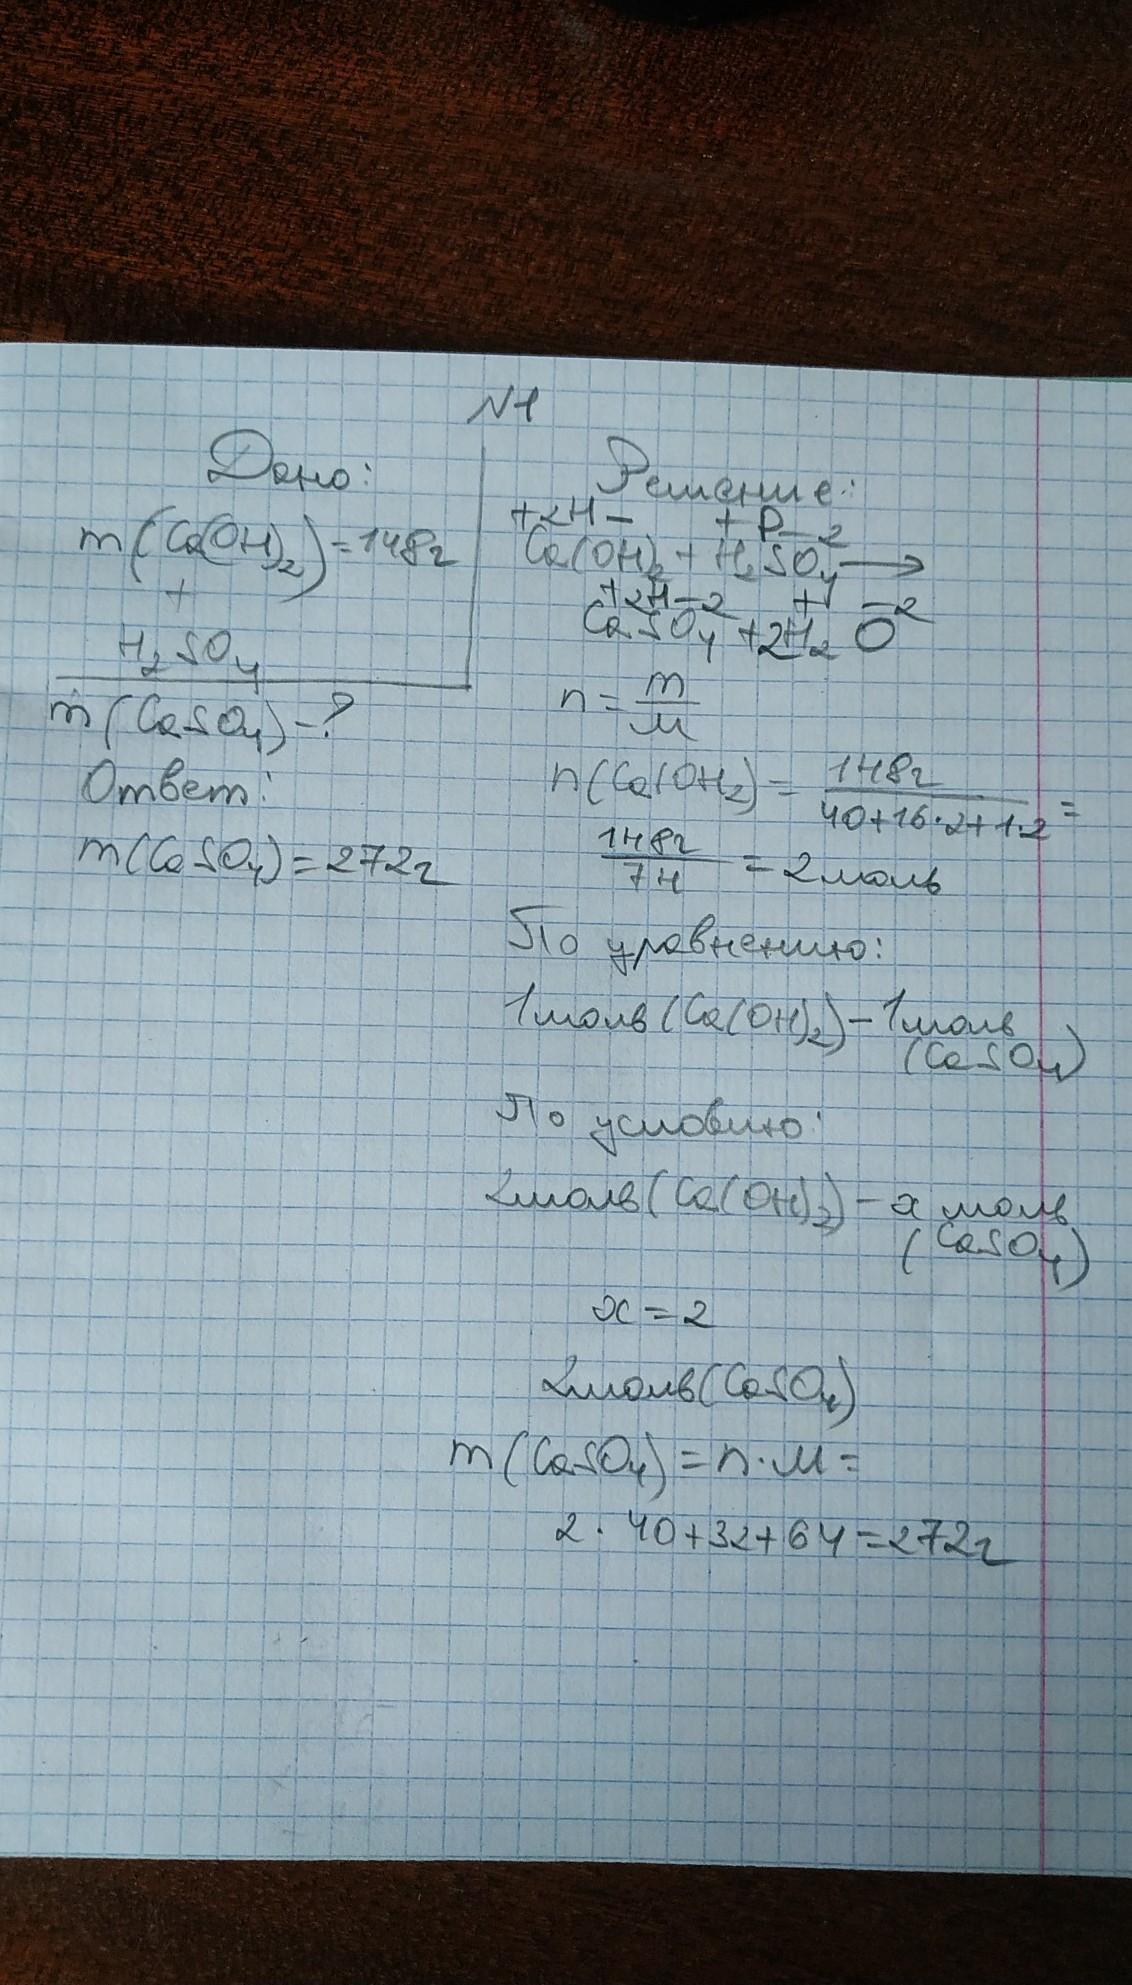 №1
Дано:
m(Ca(OH)2)=148г
+
H2SO4
m(CaSO4)-?
Ответ:
m(CaSO4)=272г
Решение:
+2Н- +Р-2
Ca(OH)2+H2SO4→
+2Н-2 + -2
CaSO4+2H2O
n=m/M
n(Ca(OH2)=148г/40+16·2+1·2=
148г/74=2моль
По уравнению:
1моль(Ca(OH)2)-1моль
(CaSO4)
По условию:
2моль(Ca(OH)2)-x моль
(CaSO4)
x=2
2моль(CaSO4)
m(CaSO4)=n·M=
2·40+32+64=272г